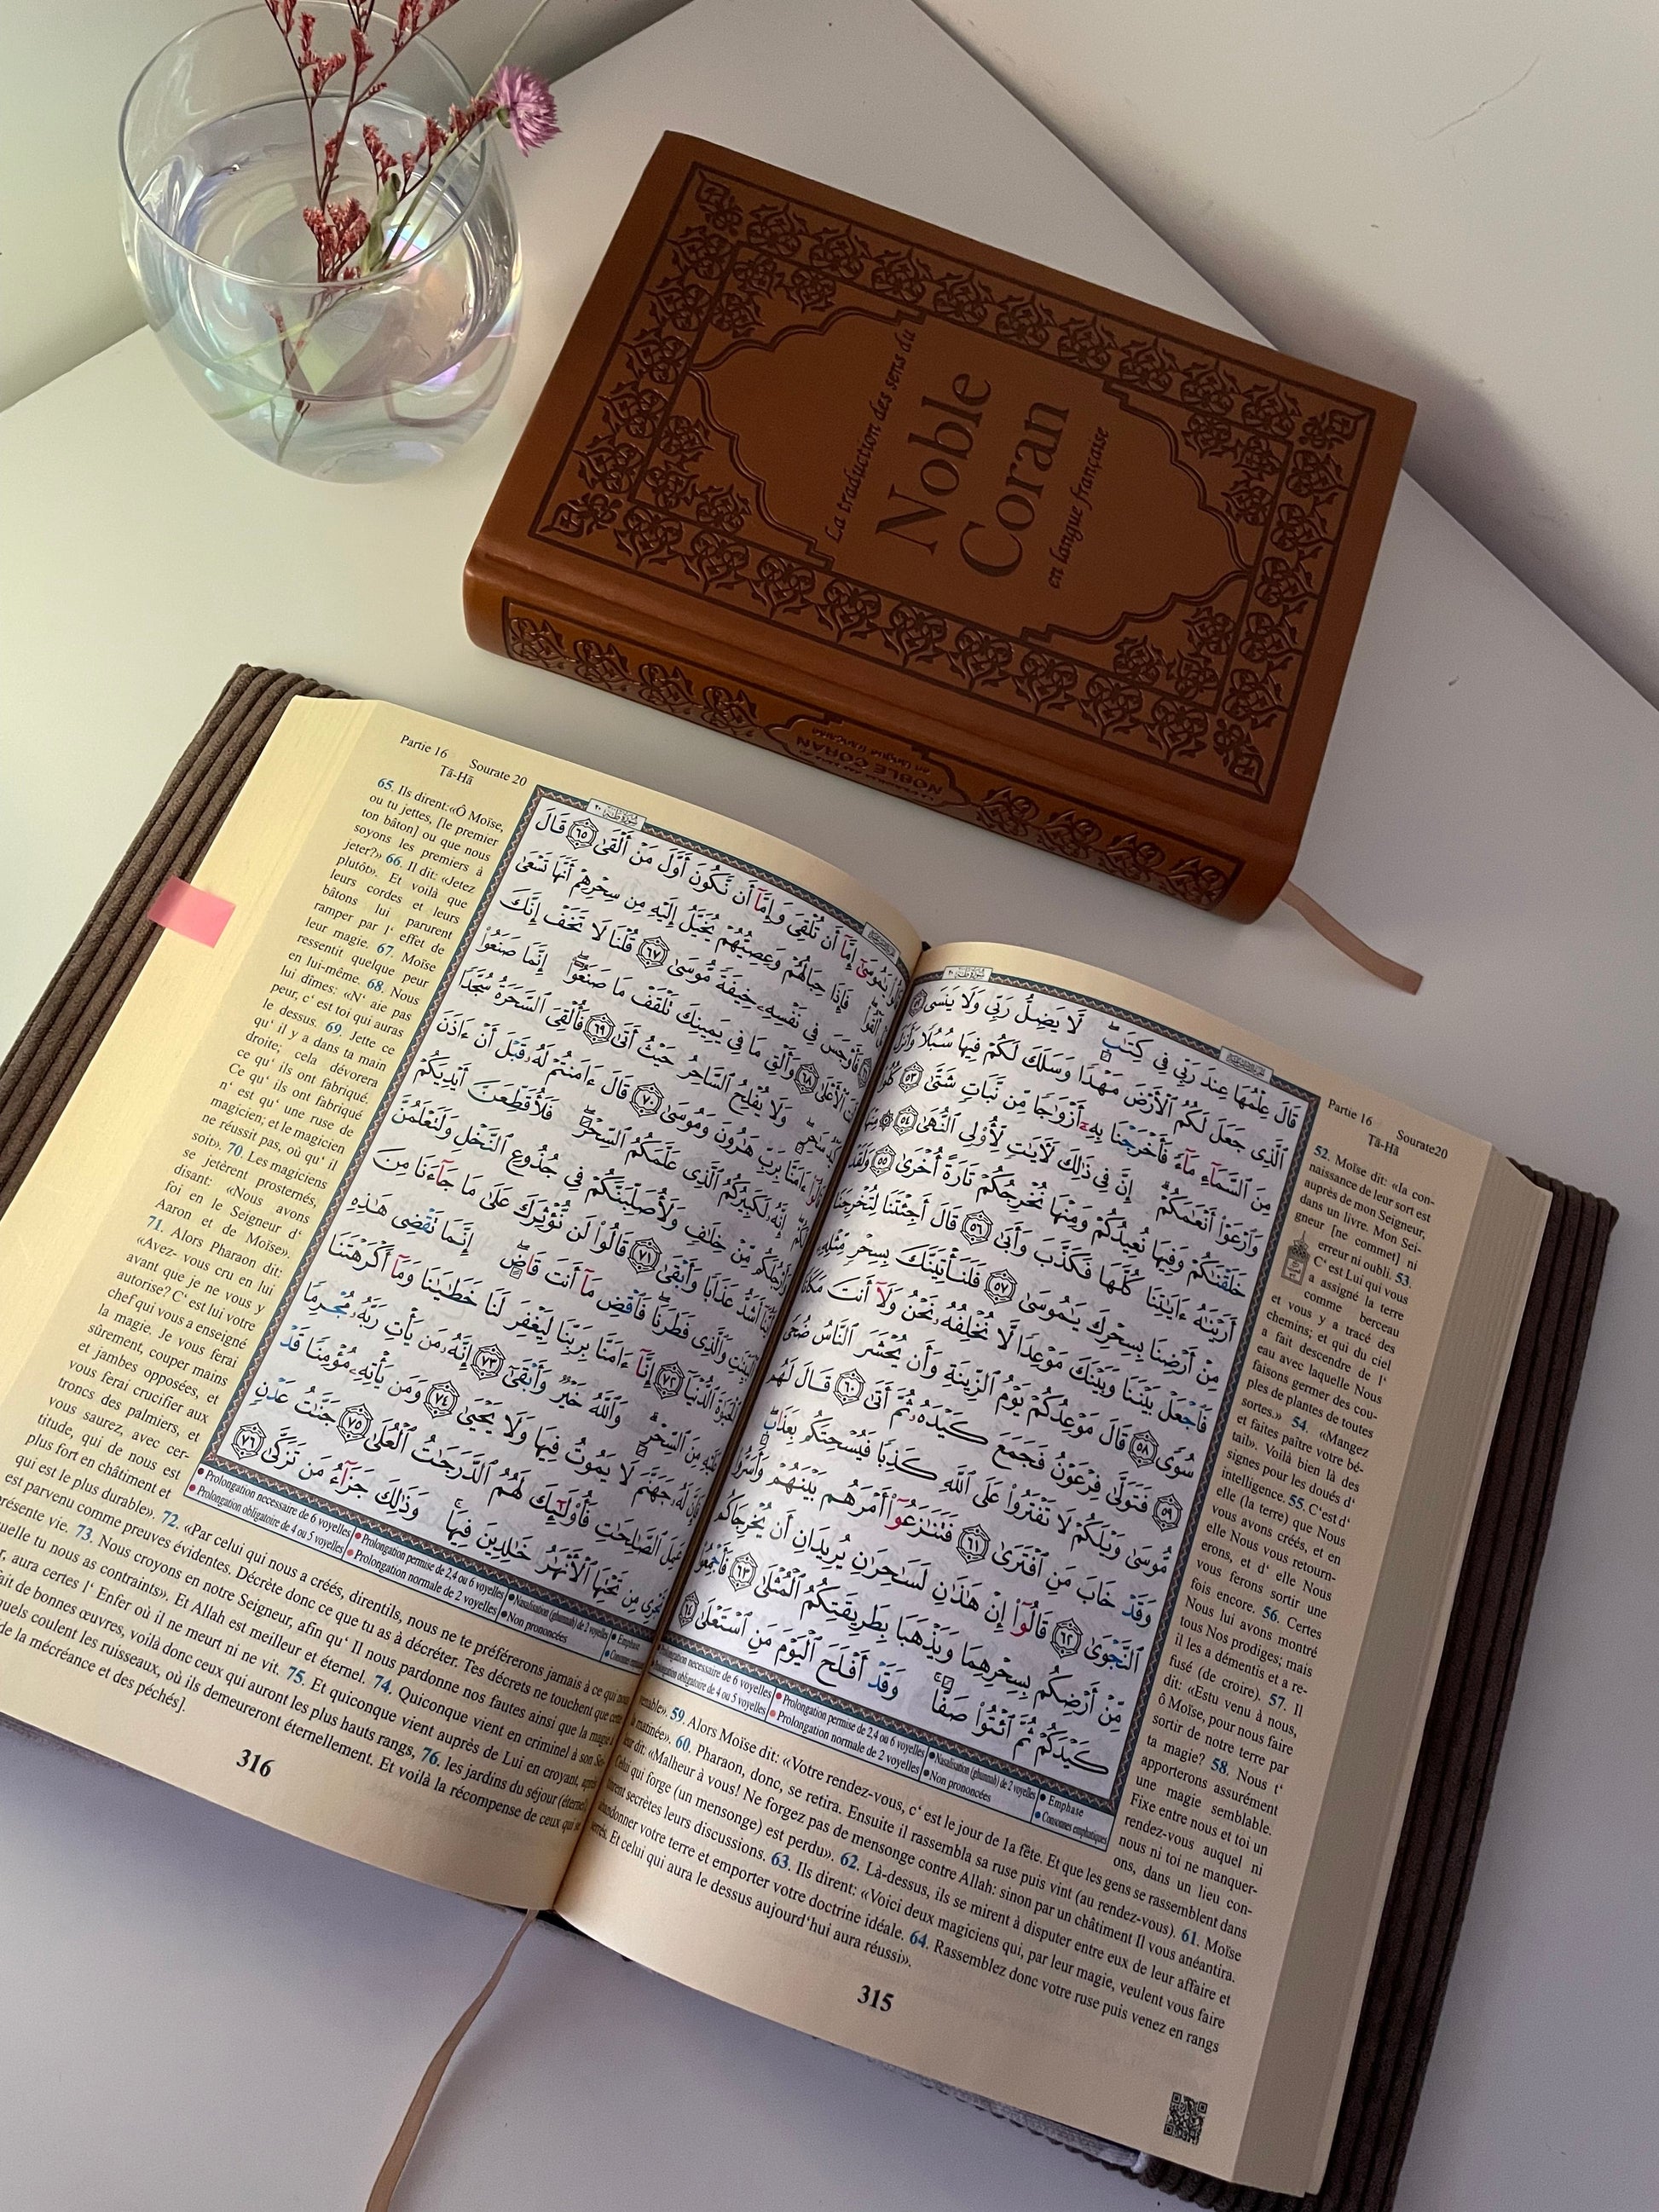 La traduction des sens du
Noble
Coran
en langue française
NOBLE CORAN
en langue française
Partie 16 Sourate20
Tā-Hā
قَالَ عِلْمُهَا عِندَ رَبِّى فِى كِتَٰبٍۖ لَّا يَضِلُّ رَبِّى وَلَا يَنسَى ٥٢
ٱلَّذِى جَعَلَ لَكُمُ ٱلْأَرْضَ مَهْدًا وَسَلَكَ لَكُمْ فِيهَا سُبُلًا وَأَنزَلَ
مِنَ ٱلسَّمَآءِ مَآءً فَأَخْرَجْنَا بِهِۦٓ أَزْوَٰجًا مِّن نَّبَاتٍ شَتَّىٰ ٥٣ كُلُوا۟
وَٱرْعَوْا۟ أَنْعَٰمَكُمْۗ إِنَّ فِى ذَٰلِكَ لَءَايَٰتٍ لِّأُو۟لِى ٱلنُّهَىٰ ٥٤ مِنْهَا
خَلَقْنَٰكُمْ وَفِيهَا نُعِيدُكُمْ وَمِنْهَا نُخْرِجُكُمْ تَارَةً أُخْرَىٰ ٥٥ وَلَقَدْ
أَرَيْنَٰهُ ءَايَٰتِنَا كُلَّهَا فَكَذَّبَ وَأَبَىٰ ٥٦ قَالَ أَجِئْتَنَا لِتُخْرِجَنَا
مِنْ أَرْضِنَا بِسِحْرِكَ يَٰمُوسَىٰ ٥٧ فَلَنَأْتِيَنَّكَ بِسِحْرٍ مِّثْلِهِۦ
فَٱجْعَلْ بَيْنَنَا وَبَيْنَكَ مَوْعِدًا لَّا نُخْلِفُهُۥ نَحْنُ وَلَآ أَنتَ مَكَانًا
سُوًى ٥٨ قَالَ مَوْعِدُكُمْ يَوْمُ ٱلزِّينَةِ وَأَن يُحْشَرَ ٱلنَّاسُ ضُحًى
٥٩ فَتَوَلَّىٰ فِرْعَوْنُ فَجَمَعَ كَيْدَهُۥ ثُمَّ أَتَىٰ ٦٠ قَالَ لَهُم
مُّوسَىٰ وَيْلَكُمْ لَا تَفْتَرُوا۟ عَلَى ٱللَّهِ كَذِبًا فَيُسْحِتَكُم بِعَذَابٍۖ
وَقَدْ خَابَ مَنِ ٱفْتَرَىٰ ٦١ فَتَنَٰزَعُوٓا۟ أَمْرَهُم بَيْنَهُمْ وَأَسَرُّوا۟
ٱلنَّجْوَىٰ ٦٢ قَالُوٓا۟ إِنْ هَٰذَٰنِ لَسَٰحِرَٰنِ يُرِيدَانِ أَن يُخْرِجَاكُم
مِّنْ أَرْضِكُم بِسِحْرِهِمَا وَيَذْهَبَا بِطَرِيقَتِكُمُ ٱلْمُثْلَىٰ ٦٣ فَأَجْمِعُوا۟
كَيْدَكُمْ ثُمَّ ٱئْتُوا۟ صَفًّاۚ وَقَدْ أَفْلَحَ ٱلْيَوْمَ مَنِ ٱسْتَعْلَىٰ ٦٤
Prolongation necessaire de 6 voyelles Prolongation permise de 2,4 ou 6 voyelles Nasalisation (ghunnah) de 2 voyelles Emphase
Prolongation obligatoire de 4 ou 5 voyelles Prolongation normale de 2 voyelles Non prononcées Consonnes emphatiques
52. Moïse dit: «la con-
naissance de leur sort est
auprès de mon Seigneur,
dans un livre. Mon Sei-
gneur [ne commet] ni
erreur ni oubli. 53.
C'est Lui qui vous
a assigné la terre
comme berceau
et vous y a tracé des
chemins; et qui du ciel
a fait descendre de l'
eau avec laquelle Nous
faisons germer des cou-
ples de plantes de toutes
sortes.» 54. «Mangez
et faites paître votre bé-
tail». Voilà bien là des
signes pour les doués d'
intelligence. 55. C'est d'
elle (la terre) que Nous
vous avons créés, et en
elle Nous vous retourn-
erons, et d' elle Nous
vous ferons sortir une
fois encore. 56. Certes
Nous lui avons montré
tous Nos prodiges; mais
il les a démentis et a re-
fusé (de croire). 57. Il
dit: «Estu venu à nous,
ô Moïse, pour nous faire
sortir de notre terre par
ta magie? 58. Nous t'
apporterons assurément
une magie semblable.
Fixe entre nous et toi un
rendez-vous auquel ni
nous ni toi ne manquer-
ons, dans un lieu con-
venable». 59. Alors Moïse dit: «Votre rendez-vous, c' est le jour de 1a fête. Et que les gens se rassemblent dans
la matinée». 60. Pharaon, donc, se retira. Ensuite il rassembla sa ruse puis vint (au rendez-vous). 61. Moïse
leur dit: «Malheur à vous! Ne forgez pas de mensonge contre Allah: sinon par un châtiment Il vous anéantira.
Celui qui forge (un mensonge) est perdu». 62. Là-dessus, ils se mirent à disputer entre eux de leur affaire et
tinrent secrètes leurs discussions. 63. Ils dirent: «Voici deux magiciens qui, par leur magie, veulent vous faire
abandonner votre terre et emporter votre doctrine idéale. 64. Rassemblez donc votre ruse puis venez en rangs
serrés. Et celui qui aura le dessus aujourd'hui aura réussi».
315
Partie 16 Sourate 20
Tā-Hā
قَالُوا۟ يَٰمُوسَىٰٓ إِمَّآ أَن تُلْقِىَ وَإِمَّآ أَن نَّكُونَ أَوَّلَ مَنْ أَلْقَىٰ ٦٥ قَالَ
بَلْ أَلْقُوا۟ۖ فَإِذَا حِبَالُهُمْ وَعِصِيُّهُمْ يُخَيَّلُ إِلَيْهِ مِن سِحْرِهِمْ أَنَّهَا تَسْعَىٰ
٦٦ فَأَوْجَسَ فِى نَفْسِهِۦ خِيفَةً مُّوسَىٰ ٦٧ قُلْنَا لَا تَخَفْ إِنَّكَ
أَنتَ ٱلْأَعْلَىٰ ٦٨ وَأَلْقِ مَا فِى يَمِينِكَ تَلْقَفْ مَا صَنَعُوٓا۟ۖ إِنَّمَا صَنَعُوا۟
كَيْدُ سَٰحِرٍۖ وَلَا يُفْلِحُ ٱلسَّاحِرُ حَيْثُ أَتَىٰ ٦٩ فَأُلْقِىَ ٱلسَّحَرَةُ سُجَّدًا
قَالُوٓا۟ ءَامَنَّا بِرَبِّ هَٰرُونَ وَمُوسَىٰ ٧٠ قَالَ ءَامَنتُمْ لَهُۥ قَبْلَ أَنْ ءَاذَنَ
لَكُمْۖ إِنَّهُۥ لَكَبِيرُكُمُ ٱلَّذِى عَلَّمَكُمُ ٱلسِّحْرَۖ فَلَأُقَطِّعَنَّ أَيْدِيَكُمْ
وَأَرْجُلَكُم مِّنْ خِلَٰفٍ وَلَأُصَلِّبَنَّكُمْ فِى جُذُوعِ ٱلنَّخْلِ وَلَتَعْلَمُنَّ
أَيُّنَآ أَشَدُّ عَذَابًا وَأَبْقَىٰ ٧١ قَالُوا۟ لَن نُّؤْثِرَكَ عَلَىٰ مَا جَآءَنَا مِنَ
ٱلْبَيِّنَٰتِ وَٱلَّذِى فَطَرَنَاۖ فَٱقْضِ مَآ أَنتَ قَاضٍۖ إِنَّمَا تَقْضِى هَٰذِهِ
ٱلْحَيَوٰةَ ٱلدُّنْيَآ ٧٢ إِنَّآ ءَامَنَّا بِرَبِّنَا لِيَغْفِرَ لَنَا خَطَٰيَٰنَا وَمَآ أَكْرَهْتَنَا
عَلَيْهِ مِنَ ٱلسِّحْرِۗ وَٱللَّهُ خَيْرٌ وَأَبْقَىٰٓ ٧٣ إِنَّهُۥ مَن يَأْتِ رَبَّهُۥ مُجْرِمًا
فَإِنَّ لَهُۥ جَهَنَّمَ لَا يَمُوتُ فِيهَا وَلَا يَحْيَىٰ ٧٤ وَمَن يَأْتِهِۦ مُؤْمِنًا قَدْ
عَمِلَ ٱلصَّٰلِحَٰتِ فَأُو۟لَٰٓئِكَ لَهُمُ ٱلدَّرَجَٰتُ ٱلْعُلَىٰ ٧٥ جَنَّٰتُ عَدْنٍ
تَجْرِى مِن تَحْتِهَا ٱلْأَنْهَٰرُ خَٰلِدِينَ فِيهَاۚ وَذَٰلِكَ جَزَآءُ مَن تَزَكَّىٰ ٧٦
Prolongation necessaire de 6 voyelles Prolongation permise de 2,4 ou 6 voyelles Nasalisation (ghunnah) de 2 voyelles Emphase
Prolongation obligatoire de 4 ou 5 voyelles Prolongation normale de 2 voyelles Non prononcées
65. Ils dirent:«Ô Moïse,
ou tu jettes, [le premier
ton bâton] ou que nous
soyons les premiers à
jeter?» 66. Il dit: «Jetez
plutôt». Et voilà que
leurs cordes et leurs
bâtons lui parurent
ramper par l' effet de
leur magie. 67. Moïse
ressentit quelque peur
en lui-même. 68. Nous
lui dîmes: «N' aie pas
peur, c' est toi qui auras
le dessus. 69. Jette ce
qu' il y a dans ta main
droite; cela dévorera
ce qu' ils ont fabriqué.
Ce qu' ils ont fabriqué
n' est qu' une ruse de
magicien; et le magicien
ne réussit pas, où qu' il
soit». 70. Les magiciens
se jetèrent prosternés,
disant: «Nous avons
foi en le Seigneur d'
Aaron et de Moïse».
71. Alors Pharaon dit:
«Avez- vous cru en lui
avant que je ne vous y
autorise? C' est lui votre
chef qui vous a enseigné
la magie. Je vous ferai
sûrement, couper mains
et jambes opposées, et
vous ferai crucifier aux
troncs des palmiers, et
vous saurez, avec cer-
titude, qui de nous est
plus fort en châtiment et
qui est le plus durable». 72. «Par celui qui nous a créés, direntils, nous ne te préférerons jamais à ce qui nous
est parvenu comme preuves évidentes. Décrète donc ce que tu as à décréter. Tes décrets ne touchent que cette
présente vie. 73. Nous croyons en notre Seigneur, afin qu' Il nous pardonne nos fautes ainsi que la magie à
quelle tu nous as contraints». Et Allah est meilleur et éternel. 74. Quiconque vient en criminel à son Sei-
r, aura certes l' Enfer où il ne meurt ni ne vit. 75. Et quiconque vient auprès de Lui en croyant, après
fait de bonnes œuvres, voilà donc ceux qui auront les plus hauts rangs, 76. les jardins du séjour (éternel
quels coulent les ruisseaux, où ils demeureront éternellement. Et voilà la récompense de ceux qui se
de la mécréance et des péchés].
316